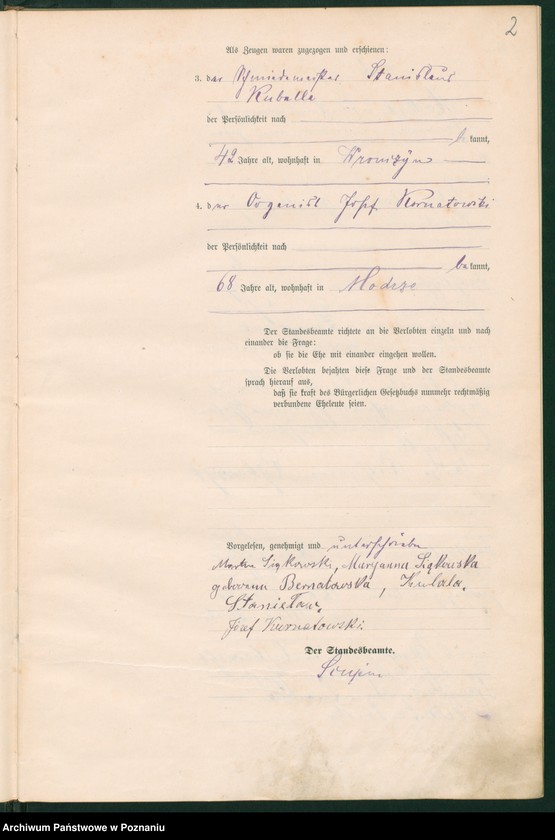 2
Als Zeugen waren zugezogen und erschienen:
3. der Schmiedemeister Stanislaus
Kuballa
der Persönlichkeit nach
be kannt,
42 Jahre alt, wohnhaft in
4. der Organist Josef Kurnatowski
der Persönlichkeit nach
be kannt,
68 Jahre alt, wohnhaft in Modrze
Der Standesbeamte richtete an die Verlobten einzeln und nach
einander die Frage:
ob sie die Ehe mit einander eingehen wollen.
Die Verlobten bejahten diese Frage und der Standesbeamte
sprach hierauf aus,
daß sie kraft des Bürgerlichen Gesetzbuchs nunmehr rechtmäßig
verbundene Eheleute seien.
Vorgelesen, genehmigt und unterschrieben
Maryanna
geborena Bernatowska, Kubala.
Stanisław,
Józef Kurnatowski.
Der Standesbeamte.
Archiwum Państwowe w Poznaniu